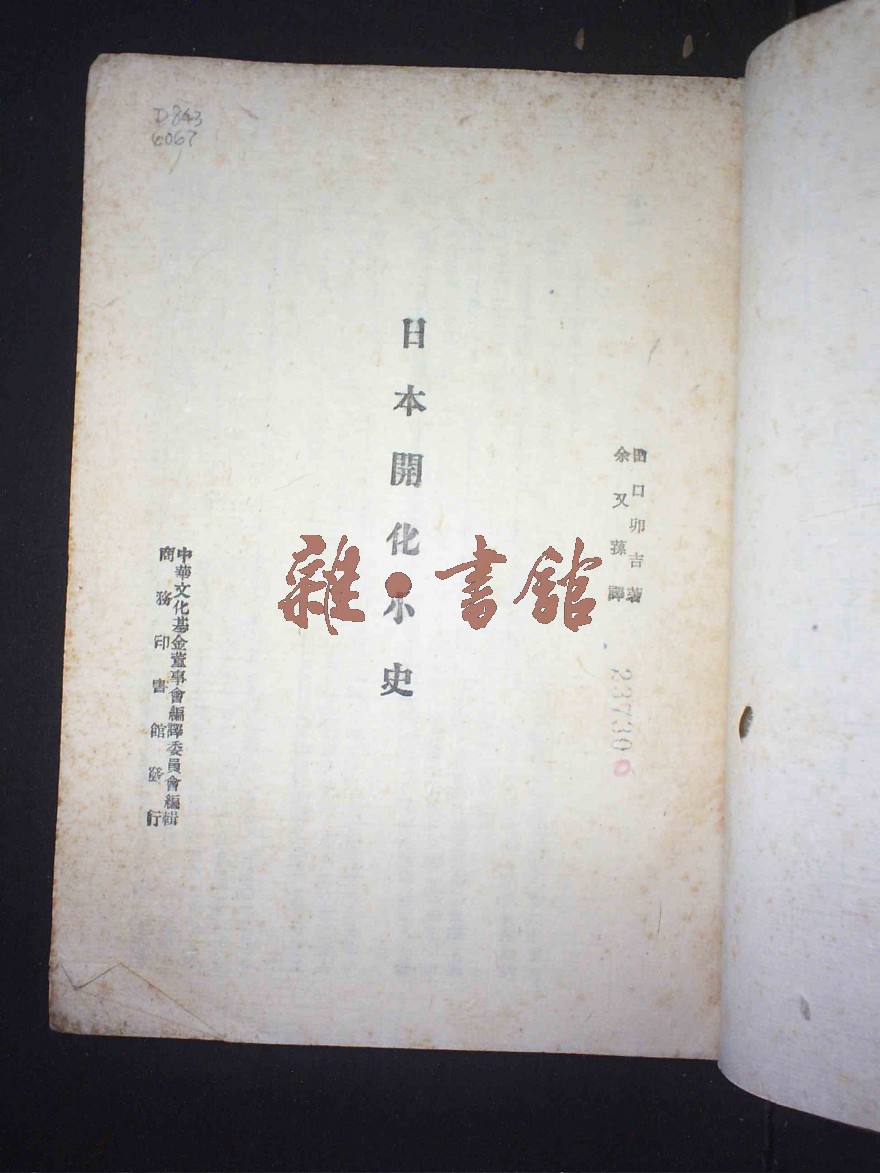 田口卯吉著
余又蓀譯
日本開化小史
中華文化基金董事會編譯委員會編輯
商務印書館發行
D843
6067
23730
雜•書館